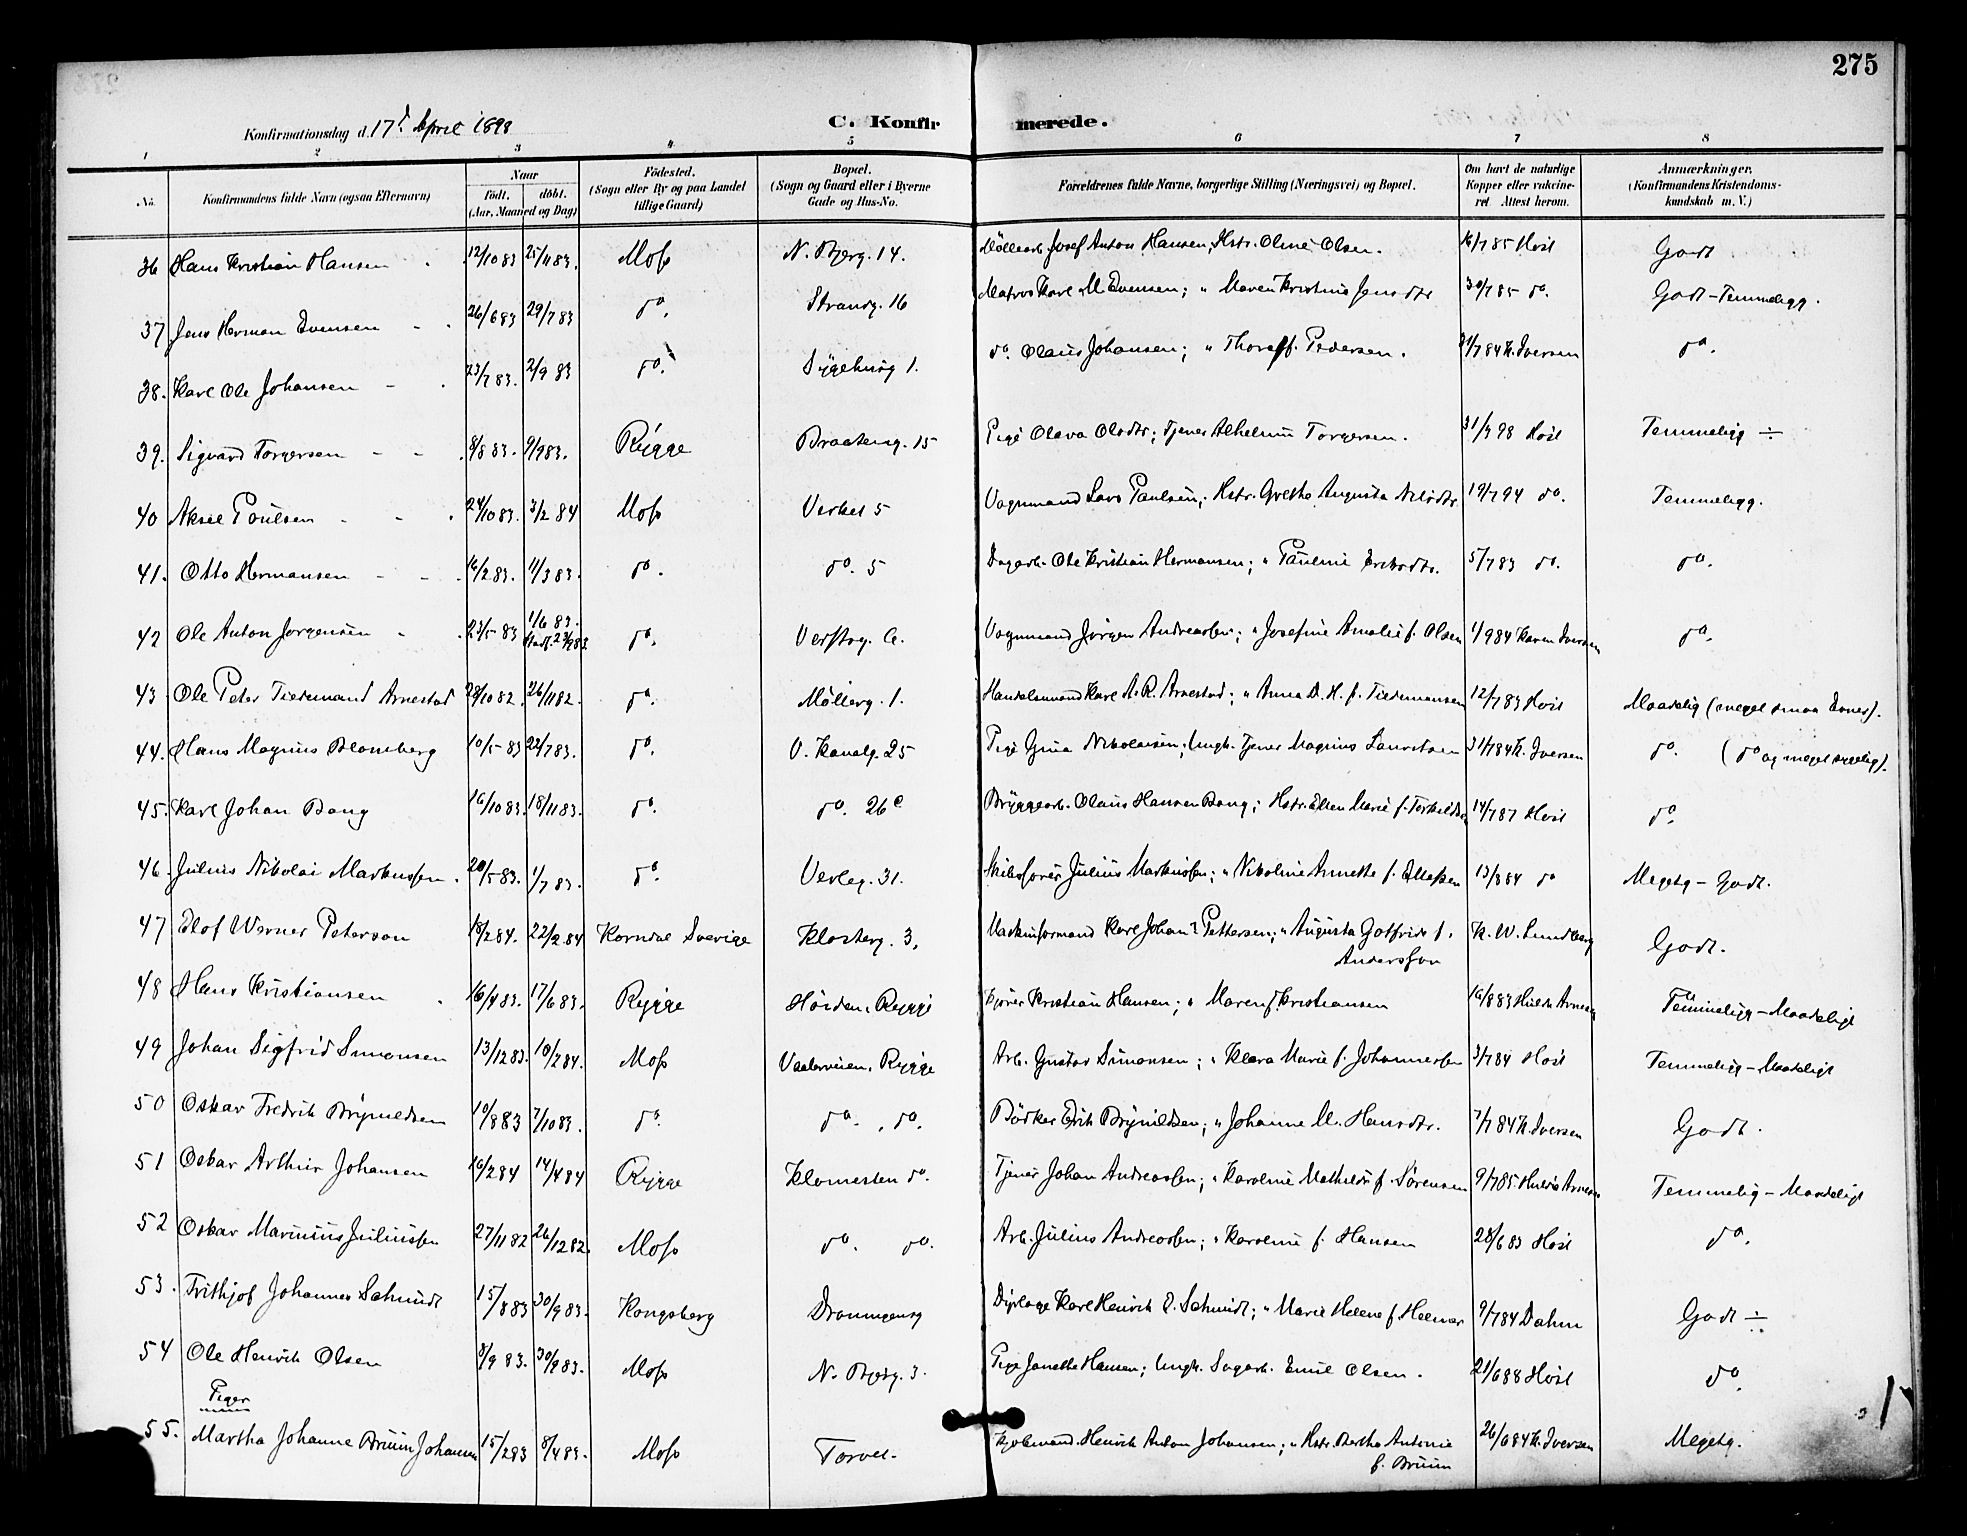 275
Konfirmationsdag d. 17d April 1898
C. Konfirmerede.
1 2 3 4 5 6 7 8
No. Konfirmandens fulde Navn (ogsaa Efternavn) Naar født, døbt. (Aar, Maaned og Dag) Fødested. (Sogn eller By og paa Landet tillige Gaard) Bopæl. (Sogn og Gaard eller i Byerne Gade og Hus-No. Forældrenes fulde Navne, borgerlige Stilling (Næringsvei) og Bopæl. Om havt de naturlige Kopper eller vakcineret. Attest herom. Anmærkninger. (Konfirmandens Kristendomskundskab m. V.)
36 Hans Kristian Hansen 12/10 83 25/11 83. Moss N. Bjerg. 14. Møllearb. Josef Anton Hansen, Hstr. Oline Olsen. 16/7 85 Høst Godt
37 Jens Herman Evensen 26/6 83 29/7 83 do. Strandg. 16 Matros Karl M. Evensen; " Maren Kristine Jensdtr 30/7 85 do. Godt-Temmeligg.
38. Karl Ole Johansen 23/7 83. 2/9 83 do. Sygehusg 1. do. Olaus Johansen; " Thora f. Pedersen. 31/7 84 K. Iversen do.
39. Sigvard Torgersen 8/8 83. 9/9 83. Rygge Braateng. 15 Pige Olava Olsdtr; Tjener Alhelm Torgersen. 31/3 98 Høst Temmeligg ÷
40 Aksel Poulsen 24/10 83. 3/2 84 Moss Verket 5 Vognmand Lars Paulsen; Hstr. Grethe Augusta Nilsdtr. 19/7 94 do. Temmeligg.
41. Otto Hermansen 16/2 83. 11/3 83. do. do. 5 Dagarb. Ole Kristian Hermansen; " Pauline Eriksdtr. 5/7 83 do. do.
42 Ole Anton Jørgensen 23/5 83 1/6 83. Stadf. 23/9 83. do. Verftsg. 6. Vognmand Jørgen Andreassen; " Josefine Amalie f. Olsen 1/9 84 Karen Iversen do.
43 Ole Peter Tiedemand Arnestad 28/10 82. 26/11 82. do. Møllerg. 1. Handelsmand Karl A. R. Arnestad; " Anna D. H. f. Tiedemansen 12/7 83 Høst Maadelig (meget smaa Evner).
44. Hans Magnus Blomberg 10/5 83 22/7 83. do. V. Kanalg. 25 Pige Gina Nikolaisen; Ungk. Tjener Magnus Lauretsen 31/7 84 K. Iversen do. (do og meget sygelig).
45. Karl Johan Bang 16/10 83. 18/11 83. do. do. 26c Bryggearb. Olaus Hansen Bang; Hstr. Ellen Marie f. Torkildsen 14/7 87 Høst do.
46. Julius Nikolai Markussen. 20/5 83. 1/7 83. do. Verleg. 31. Skibsfører Julius Markussen; " Nikoline Annette f. Ellefsen 13/3 84 do Megetg - Godt.
47 Elof Werner Peterson 18/2 84. 22/2 84 Korndal Sverige Klosterg. 3, Maskinformand Karl Johan Pettersen; " Augusta Gotfrida f. Andersson K. W. Lundberg Godt.
48 Hans Kristiansen 16/4 83. 17/6 83. Rygge Høiden, Rygge Kjører Kristian Hansen; " Maren f. Kristiansen 16/8 83 Hulda Arnesen Temmeligg - Maadeligt
49 Johan Sigfrid Simonsen 13/12 83. 10/2 84. Moss Vaalerveien, Rygge Arb. Gustav Simonsen; " Klara Marie f. Johannessen 3/7 84 Høst Temmeligg - Maadeligt
50 Oskar Fredrik Brynildsen 10/8 83 7/10 83. do. do. , do. Bødker Erik Brynildsen; " Johanne M. Hansdtr. 7/7 84 K. Iversen Godt.
51 Oskar Arthur Johansen 16/2 84 14/4 84 Rygge Klomesten do. Tjener Johan Andreassen; " Karoline Mathilde f. Sørensen 9/7 85 Hulda Arnesen Temmelig - Maadeligt
52 Oskar Marinius Juliussen 27/11 82 26/12 82. Moss do. do. Arb. Julius Andreassen; " Karoline f. Hansen 28/6 83 Høst do.
53. Frithjof Johannes Schmidt 15/8 83 30/9 83. Kongsberg Dronningensg Karl Henrik E. Schmidt; " Marie Helene f. Helmer 9/7 84 Dahm Godt ÷
54 Ole Henrik Olsen 8/9 83. 30/9 83. Moss N. Bjerg. 3. Pige Janette Hansen; Ungk. Sagarb. Emil Olsen. 21/6 88 Høst do.
Piger
55. Martha Johanne Bruun Johansen 15/2 83 8/4 83. Moss Torvet. Kjøbmand Henrik Anton Johansen; " Hstr. Bertha Antonie f. Bruun 26/6 84 K. Iversen Megetg.